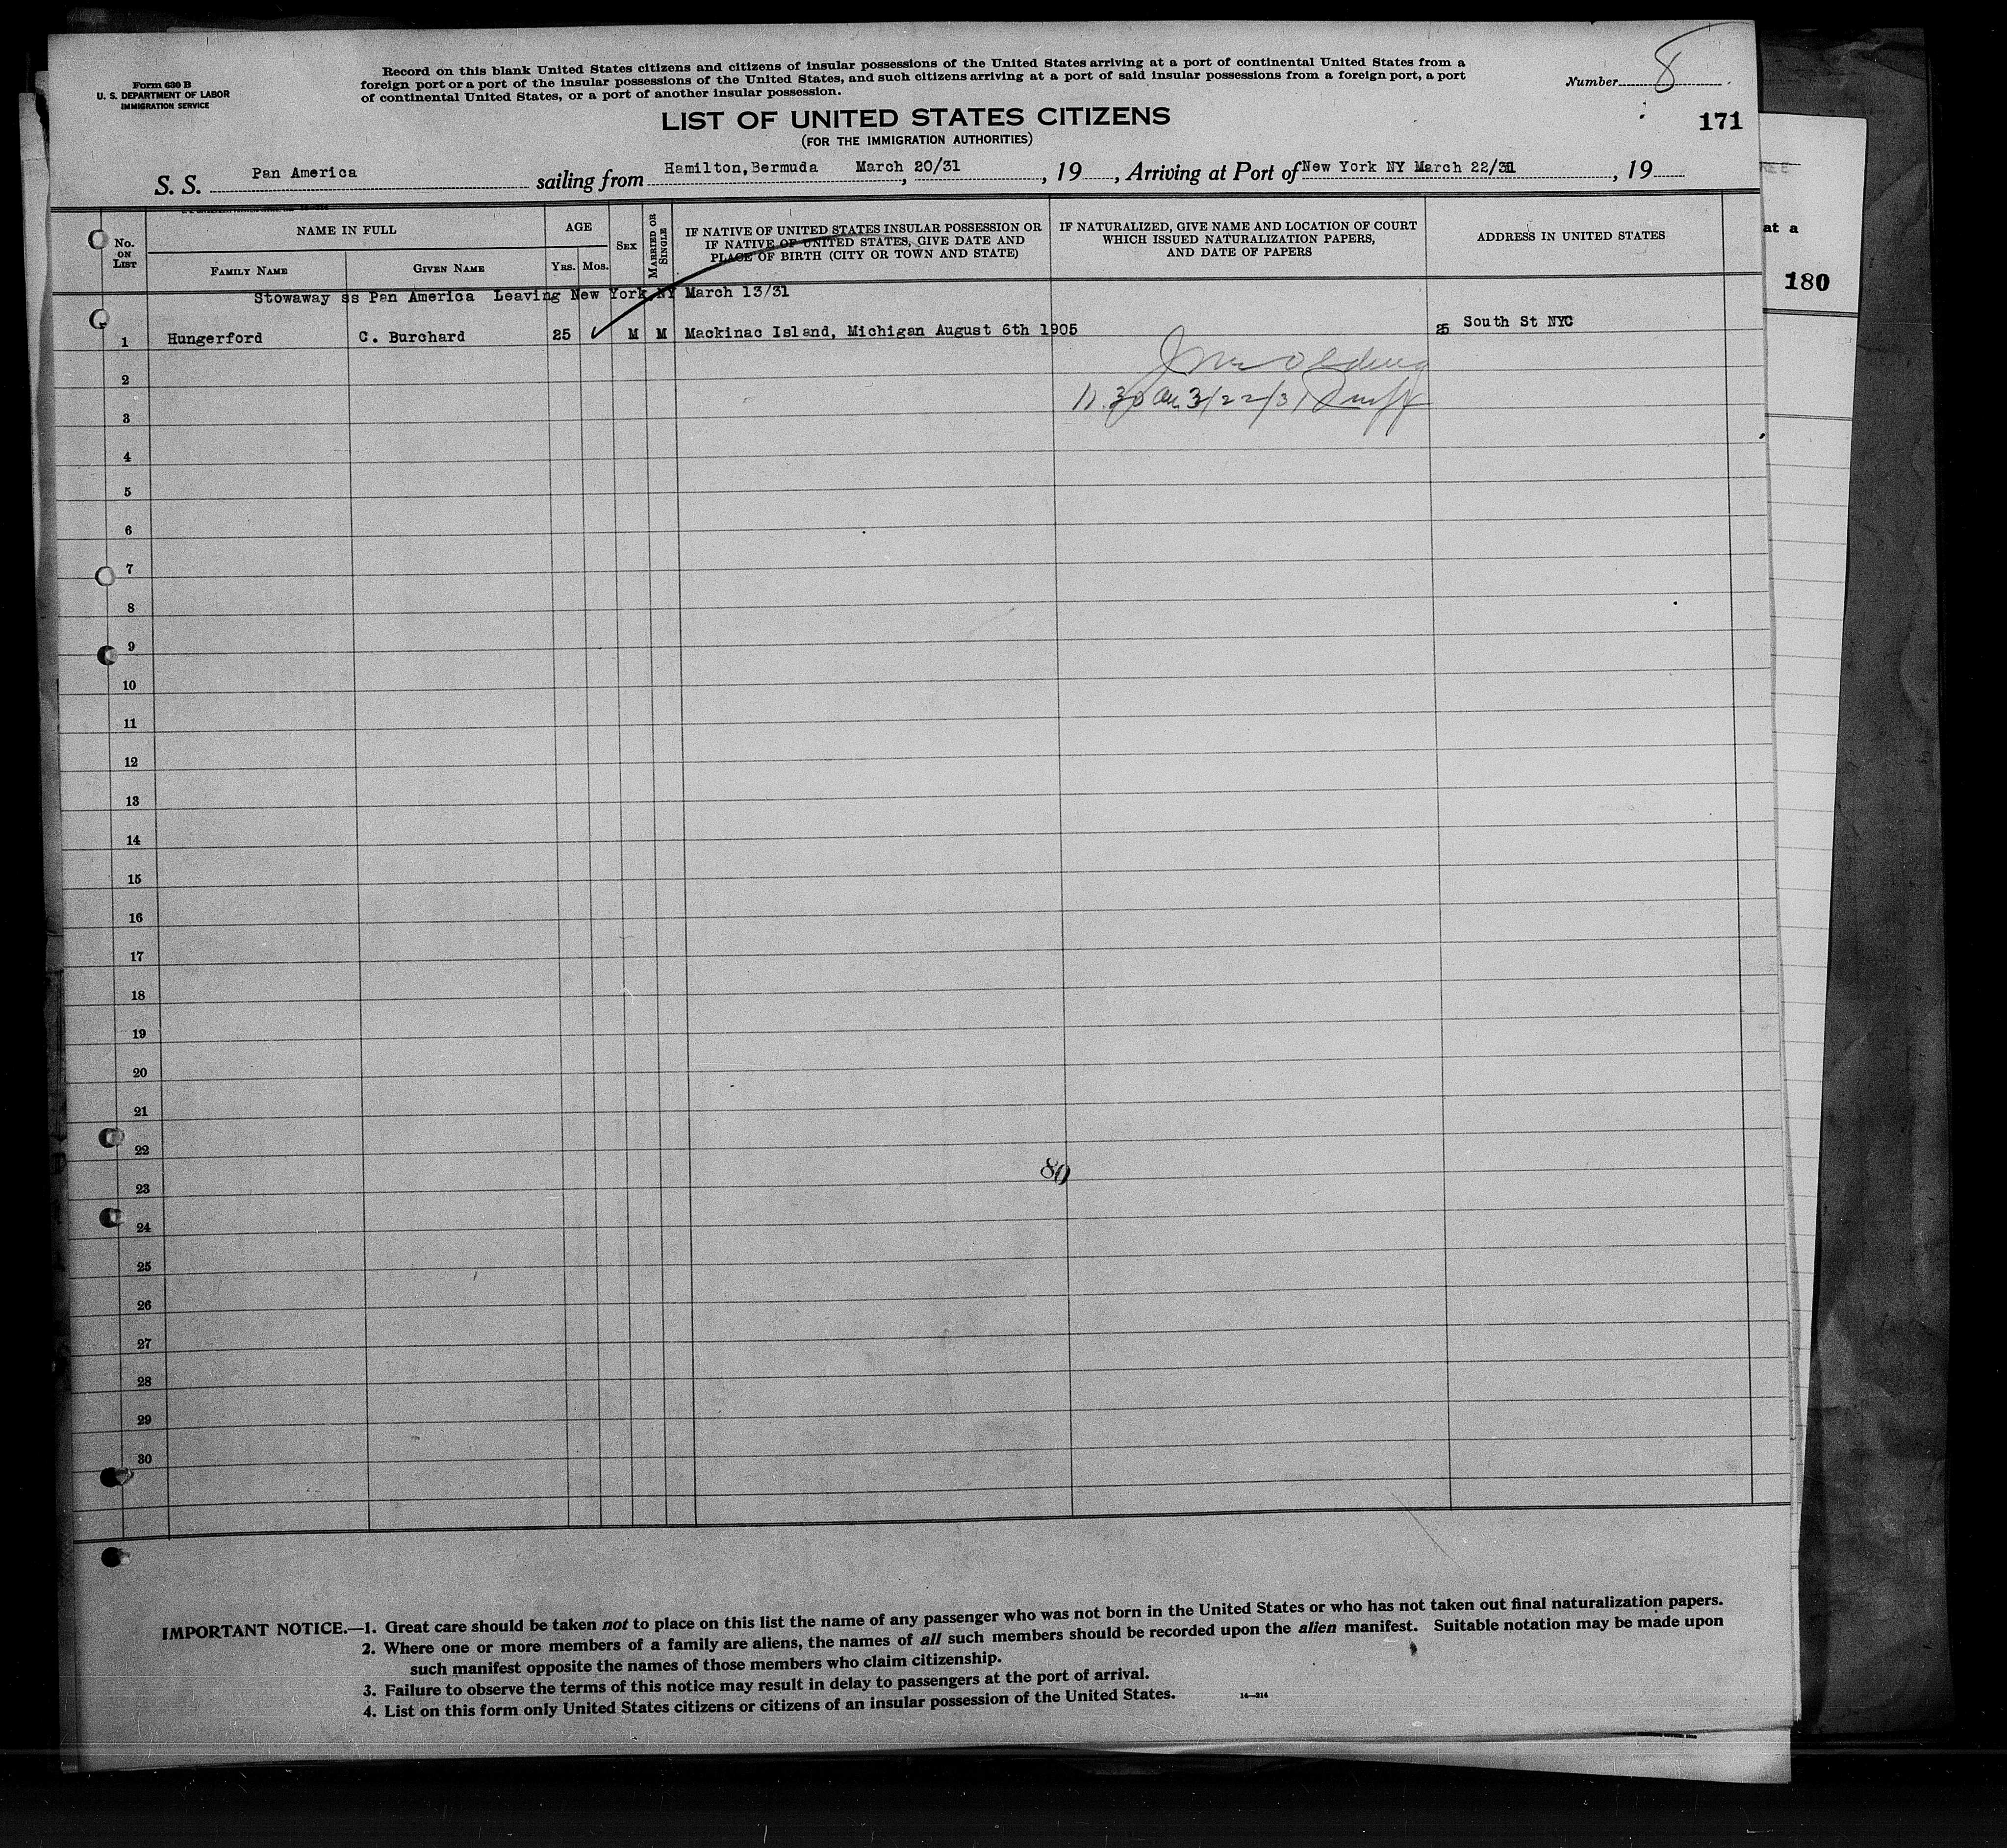 Form 630 B
U. S. DEPARTMENT OF LABOR
IMMIGRATION SERVICE
Record on this blank United States citizens and citizens of insular possessions of the United States arriving at a port of continental United States from a
foreign port or a port of the insular possessions of the United States, and such citizens arriving at a port of said insular possessions from a foreign port, a port
of continental United States, or a port of another insular possession.
Number 8
171
LIST OF UNITED STATES CITIZENS
(FOR THE IMMIGRATION AUTHORITIES)
S. S. Pan America sailing from Hamilton, Bermuda March 20/31, 19 , Arriving at Port of New York NY March 22/31, 19
No. ON LIST
NAME IN FULL
FAMILY NAME
GIVEN NAME
AGE
YRS.
MOS.
SEX
MARRIED OR SINGLE
IF NATIVE OF UNITED STATES INSULAR POSSESSION OR
IF NATIVE OF UNITED STATES, GIVE DATE AND
PLACE OF BIRTH (CITY OR TOWN AND STATE)
IF NATURALIZED, GIVE NAME AND LOCATION OF COURT
WHICH ISSUED NATURALIZATION PAPERS,
AND DATE OF PAPERS
ADDRESS IN UNITED STATES
at a
180
Stowaway ss Pan America Leaving New York NY March 13/31
1 Hungerford C. Burchard 25 M M Mackinac Island, Michigan August 6th 1905 25 South St NYC
2
11.30 am 3/22/31
3
4
5
6
7
8
9
10
11
12
13
14
15
16
17
18
19
20
21
22
80
23
24
25
26
27
28
29
30
IMPORTANT NOTICE.—1. Great care should be taken not to place on this list the name of any passenger who was not born in the United States or who has not taken out final naturalization papers.
2. Where one or more members of a family are aliens, the names of all such members should be recorded upon the alien manifest. Suitable notation may be made upon
such manifest opposite the names of those members who claim citizenship.
3. Failure to observe the terms of this notice may result in delay to passengers at the port of arrival.
4. List on this form only United States citizens or citizens of an insular possession of the United States.
14—214